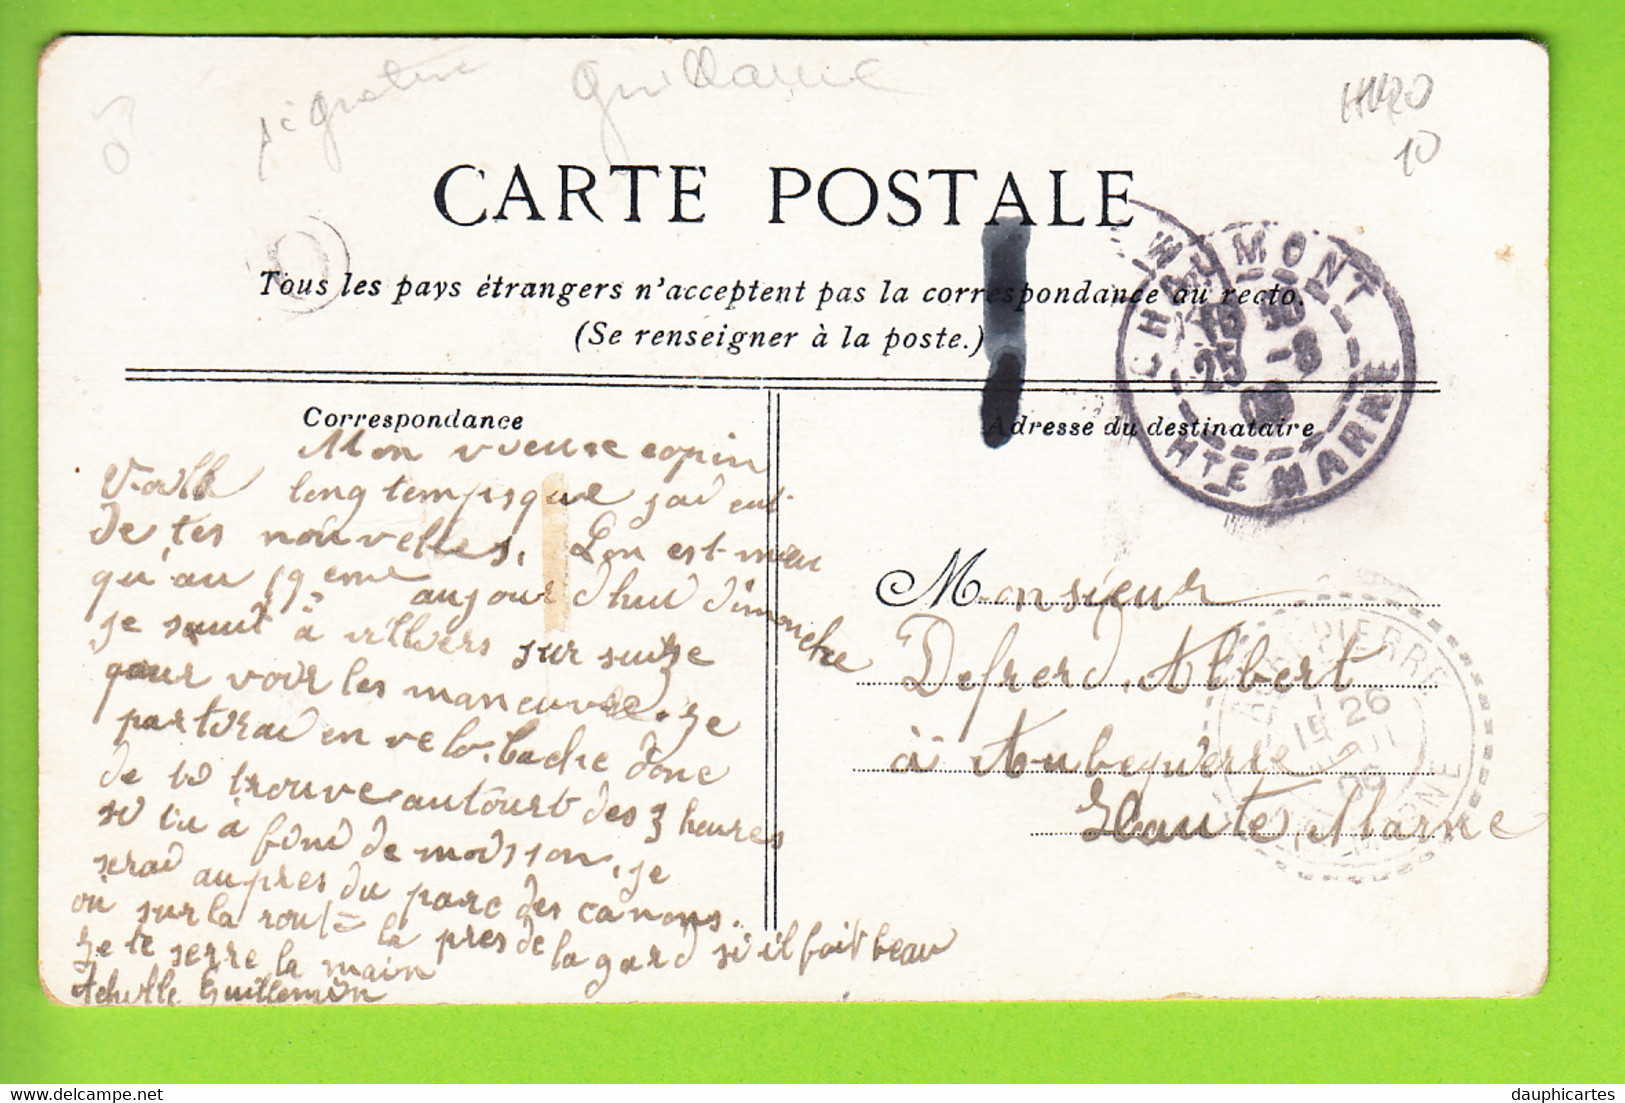 signature Guillaume
CARTE POSTALE
Tous les pays étrangers n'acceptent pas la correspondance au recto.
(Se renseigner à la poste.)
CHAUMONT
25 -8
HTE MARNE
Correspondance
Mon vieux copin
Voilk longtemps que jai eut
de tes nouvelles. L'on est
qu'au 19eme aujourd'hui dimonche
je suuit à villvers sur suize
pour voir les maneuvre. Je
partirai en velo. tache donc
de te trouve autourt des 3 heures
si tu à fini de moisson. je
serai aupres du parc des canons.
où sur la rout = la pres de la gard si il fait beau
Je te serre la main
Achille Guillemin
Adresse du destinataire
Monsieur
Defrerd, Albert
à Aubequierre
Haute, Marne
PIERRE
26
MARNE
dauphicartes